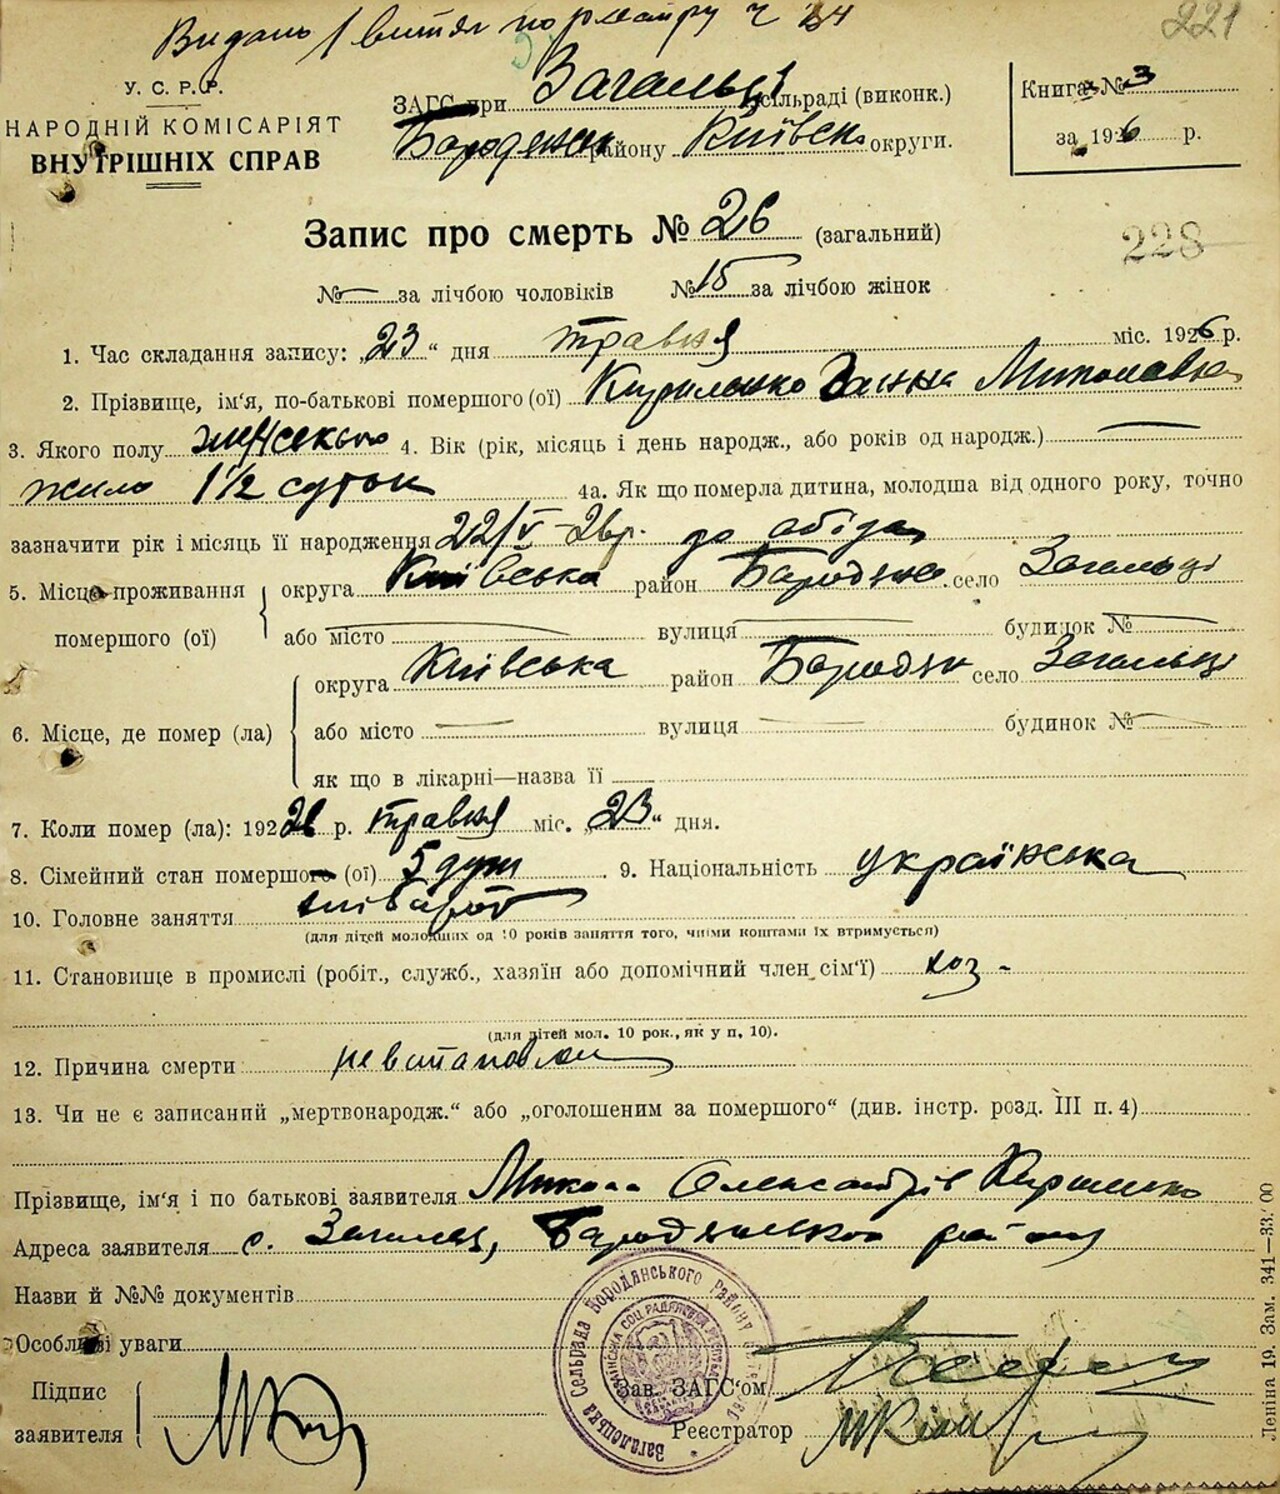 Видано 1 витяг по реєстру ч 34
221
У. С. Р. Р.
НАРОДНІЙ КОМІСАРІЯТ
ВНУТРІШНІХ СПРАВ
ЗАГС при Загальці сільраді (виконк.)
району Київськ округи.
Книга № 3
за 1926 р.
Запис про смерть № 26 (загальний)
228
№ — за лічбою чоловіків № 15 за лічбою жінок
1. Час складання запису: „23“ дня травня міс. 1926 р.
2. Прізвище, ім'я, по-батькові помершого (ої) Ганна Миколаївна
3. Якого полу женського 4. Вік (рік, місяць і день народж., або років од народж.) —
жило 1 1/2 суток 4а. Як що померла дитина, молодша від одного року, точно
зазначити рік і місяць її народження 22/V–26р. до обіда
5. Місце проживання помершого (ої) округа Київська район Бородянс. село Загальці
або місто — вулиця — будинок № —
6. Місце, де помер (ла) округа Київська район Бородян село Загальці
або місто — вулиця — будинок № —
як що в лікарні—назва її —
7. Коли помер (ла): 192 26 р. травня міс. „23“ дня.
8. Сімейний стан помершого (ої) 5 душ. 9. Національність українська
10. Головне заняття хлібороб
(для дітей молодших од 10 років заняття того, чиїми коштами їх втримується)
11. Становище в промислі (робіт., служб., хазяїн або допомічний член сім'ї) хоз -
(для дітей мол. 10 рок., як у п. 10).
12. Причина смерти невстановлен
13. Чи не є записаний „мертвонародж.“ або „оголошеним за помершого“ (див. інстр. розд. III п. 4)
Прізвище, ім'я і по батькові заявителя Микола Олександрів
Адреса заявителя с. Загальці, Бородянського району
Назви й №№ документів
Особливі уваги
Підпис
заявителя
Зав. ЗАГС'ом
Реєстратор
Загалецька Сельрада Бородянського району
Леніна 19. Зам. 341—33.00